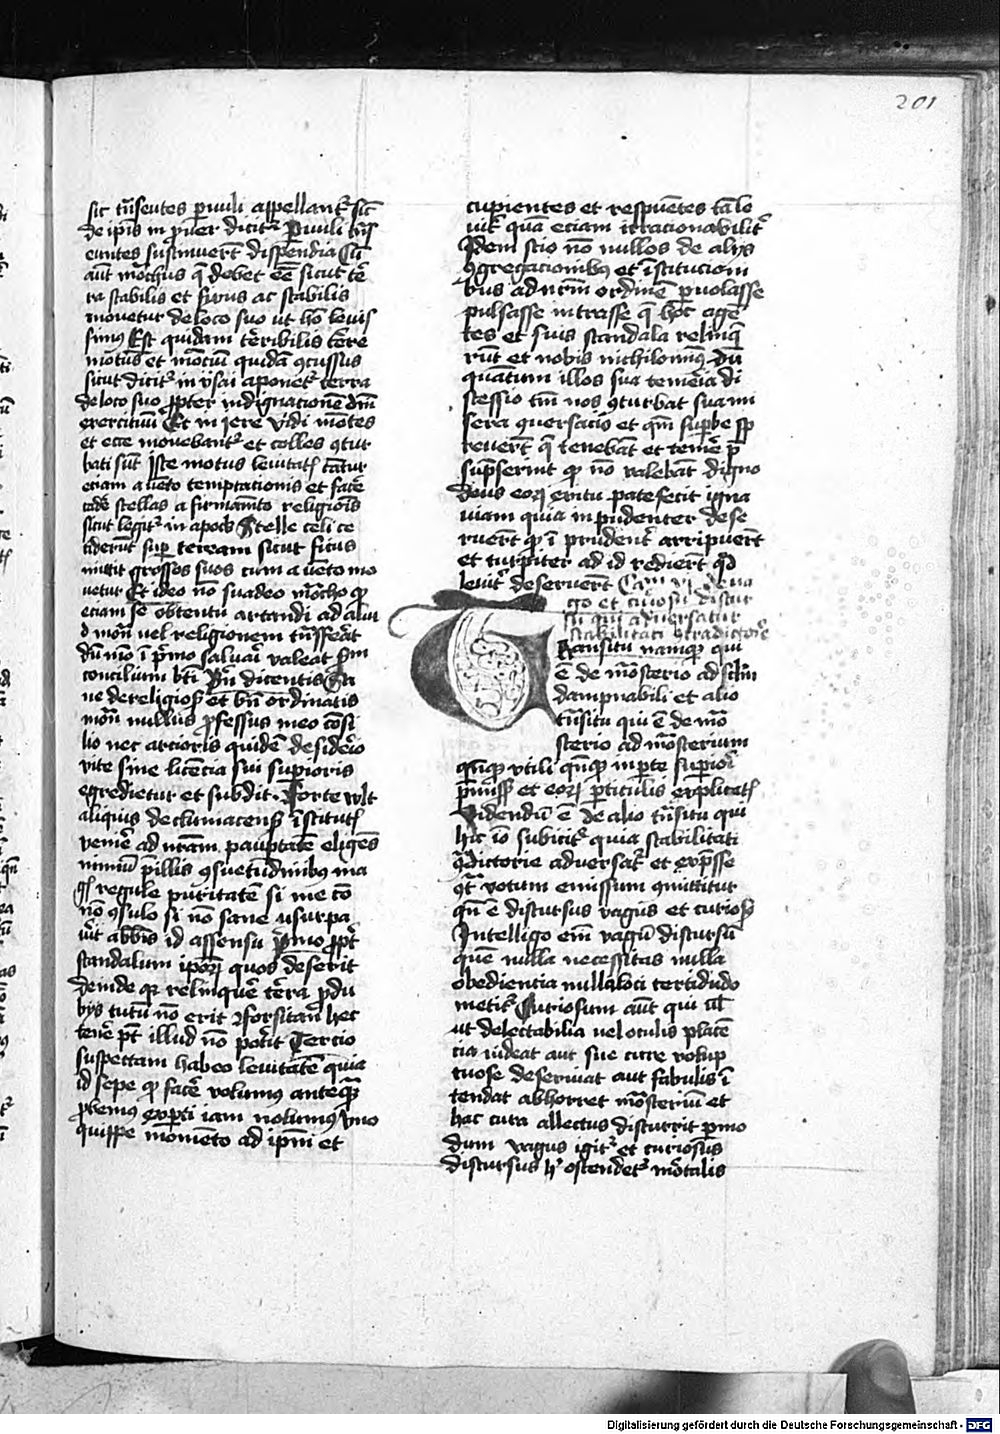 201
sic tn̄seutes p̲uuli appellant᷑ sic̄
de ip̄is in p̲uer dicit᷑ P̲uuli tn̄s
euntes sustinuer̄t dispendia Cū
aūt mo̅chus q̄ debet eē sicut te᷑
ra stabilis et firm̄us ac stabilis
mouetur de loco suo ut ho̅ leuis
simꝰ Est quidam terribilis terre
motus et mo̅ciū quidā ꝯcussus
sicut dicit᷑ in ysai aponet᷑ terra
de loco suo ꝓpter indignacionē dn̄i
exercituū Et in iere vidi mo̅tes
et ecce mouebant᷑ et colles ꝯtur
bati sūt Iste motus leuitat᷒ cātur
eciam a ue̅to temptacionis et fac̄e
cade᷑ stellas a firmame̅to religio̅is
sicut legit᷑ in apoc̄ Stelle celi ce
ciderūt sup̲ terram sicut ficus
mittit grossos suos cum a ue̅to mo
uetur Et ideo no̅ suadeo mo̅cho ꝙ
eciam se̅ obtentu artandi ad aliū
d mo̅n̄ uel religionem tn̄sferat
dū mo̅ ī p̄mo saluari valeat Scm̄
concilium bt̄i Bn̄ dicentis Sta
ne de religios᷒ et bn̄ ordinatis
mo̅n̄ nullus ꝓfessus meo co̅si
lio nec arcioris quidē desiderio
vite sine licencia sui superioris
egredietur et subdit Forte vult
aliquis de cluniacens᷒ īstitut᷒
venire ad nr̄am paup̲tatē eligēs
nimiū p̄ illis ꝯsuetudinibꝰ ma
gꝭ regule puritatē si me co̅
no̅ ꝯsulo si no̅ sane usurpa
uit abb̄is id assensu P̄mo ꝓpt᷑
scandalum ipoꝝ quos deserit
deinde qꝛ relinquer̄e cert̄a ꝓ du
bys tutū no̅ erit forsitan hec
tener̄e p̄t illud no̅ poterit Tercio
suspectam habeo leuitatē quia
id sepe ꝙ facile volumꝰ anteqꝫ
ꝓbemus exp̲ti iam nolumꝰ Vno
quippe mome̅to ad ip̄m et
cupientes et respuentes tale
uik᷑ quā eciam irracionabilit᷑
Idem scio no̅ nullos de alijs
ꝯgregacionibꝰ et īstitucioni
bus ad nr̄m ordinē ꝯuolasse
pulsasse intrasse q̄ hoc agen
tes et suis scandala relinq̄
rūt et nobis nichilominꝰ dū
quantum illos sua temeria di
scessio tm̄ nos ꝯturbat sua mi
sera ꝯuersacio et qm̄ sup̲be sp
reuer̄t q̄ tenebāt et temer̄e p̄
sūpserūt ꝙ no̅ valebāt digno
deus eoꝝ exitu patefecit igna
uiam quia inpudenter dese
ruer̄t ꝙ ī prudent᷑ arripuer̄t
et turpiter ad id redier̄t qd̄
leuit᷑ deseruer̄t Cam vi de ua
go et curioso discur
su qui aduersatur
stabilitati ꝯtradictorie
TRansitu namqꝫ qui
ē de mo̅sterio ad sc̄lm
dampnabili et alio
tn̄situ qui ē de mo̅
sterio ad mo̅sterium
qn̄qꝫ vtili qn̄qꝫ in p̲te superiori
p̄miss᷒ et eoꝝ p̲ticulis explicat᷒
Videndū ē de alio tn̄situ qui
hic io̅ subicit᷑ quia stabilitati
ꝯ̄dictorie aduersat᷑ et exp̄sse
ꝯt᷑ votum emissum ꝯmittitur
qn̄ ē discursus vagus et curiosꝰ
Intelligo em̄ vagū discursū
quē nulla necessitas nulla
obedientia nulla loci certitudo
metit᷑ Curiosum aūt qui ul̄
ut delectabilia uel oculis placē
cia uideat aut sue cure volup
tuose deseruiat aut fabulis ī
tendat abhorret mo̅steriū et
hac cura allectus discurrit p̄mo
dum vagus igit᷑ et curiosus
discursus h᷑ ostendet᷑ mo̅talis
Digitalisierung gefördert durch die Deutsche Forschungsgemeinschaft - DFG